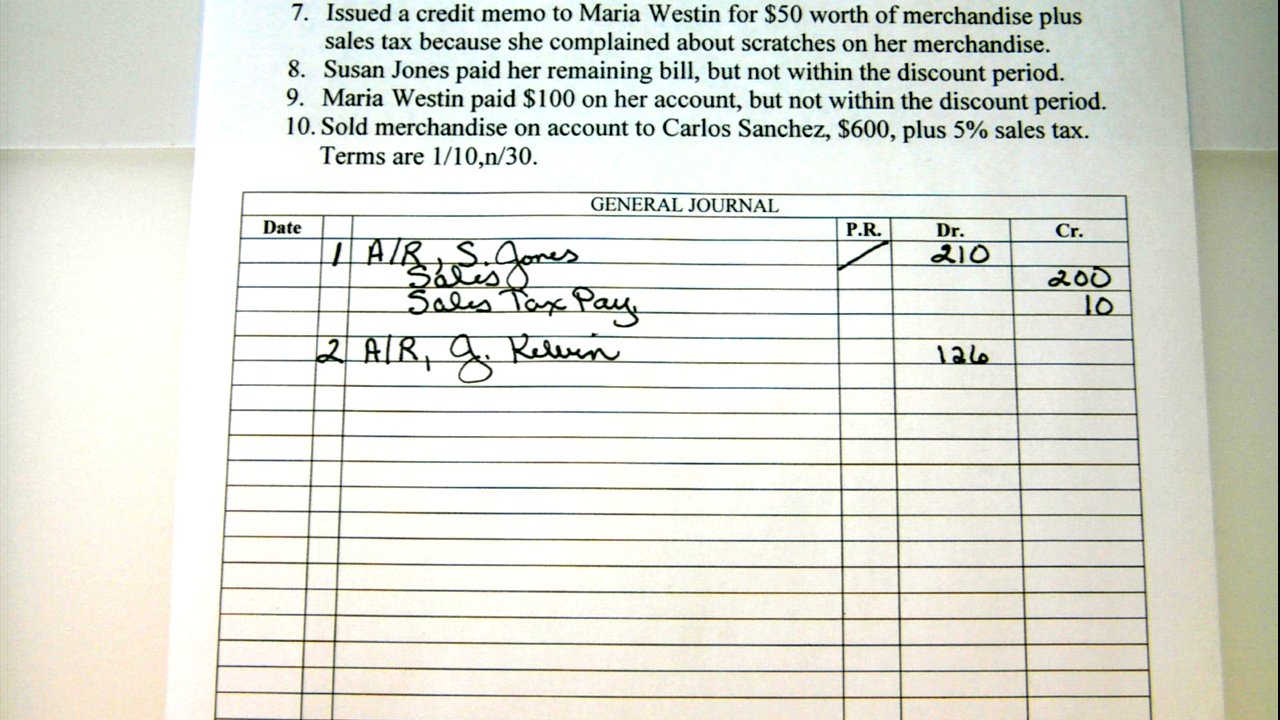 7. Issued a credit memo to Maria Westin for $50 worth of merchandise plus
sales tax because she complained about scratches on her merchandise.
8. Susan Jones paid her remaining bill, but not within the discount period.
9. Maria Westin paid $100 on her account, but not within the discount period.
10. Sold merchandise on account to Carlos Sanchez, $600, plus 5% sales tax.
Terms are 1/10,n/30.
GENERAL JOURNAL
Date P.R. Dr. Cr.
1 A/R, S. Jones 210
Sales 200
Sales Tax Pay. 10
2 A/R, J. Kelvin 126